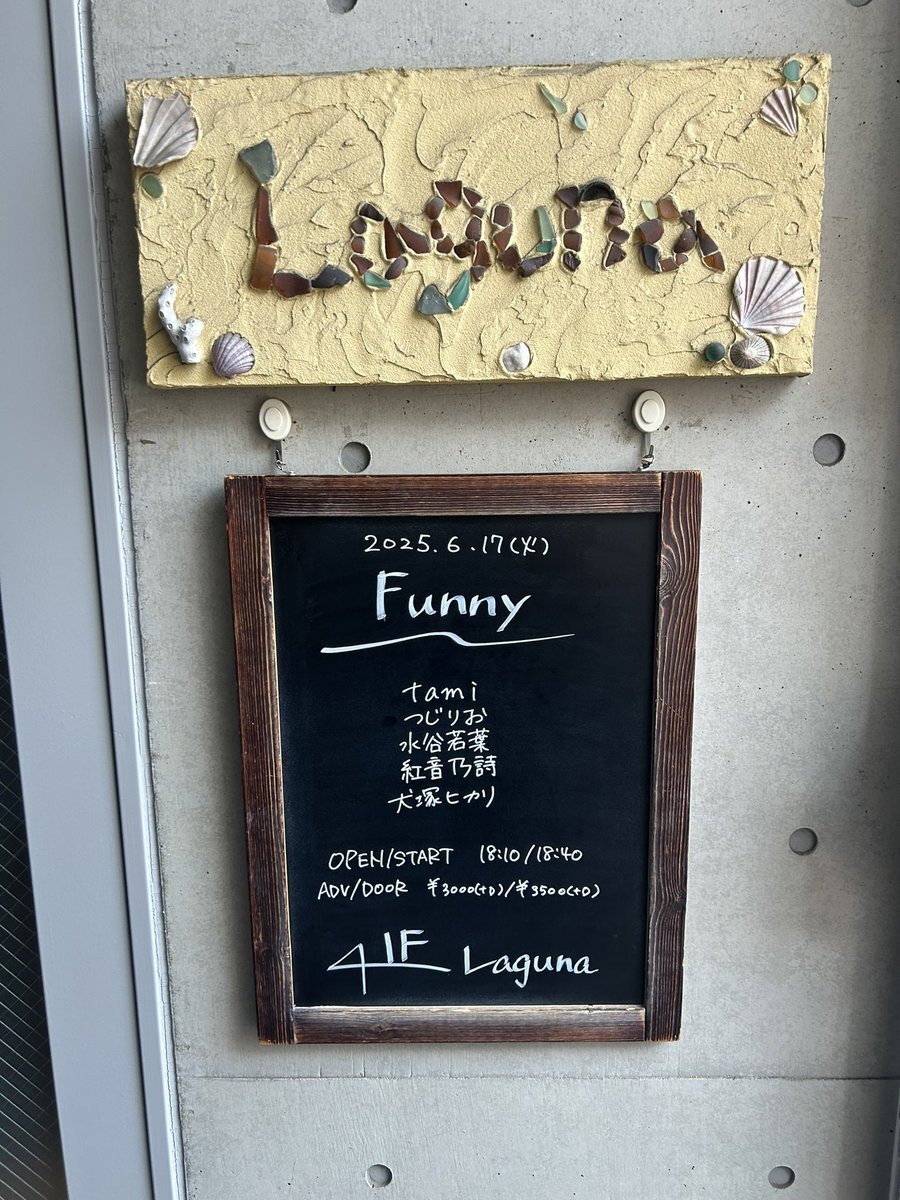 Laguna
2025.6.17(火)
Funny
tami
つじりお
水谷若葉
紅音乃詩
犬塚ヒカリ
OPEN/START 18:10/18:40
ADV/DOOR ¥3000(+D)/¥3500(+D)
1F Laguna